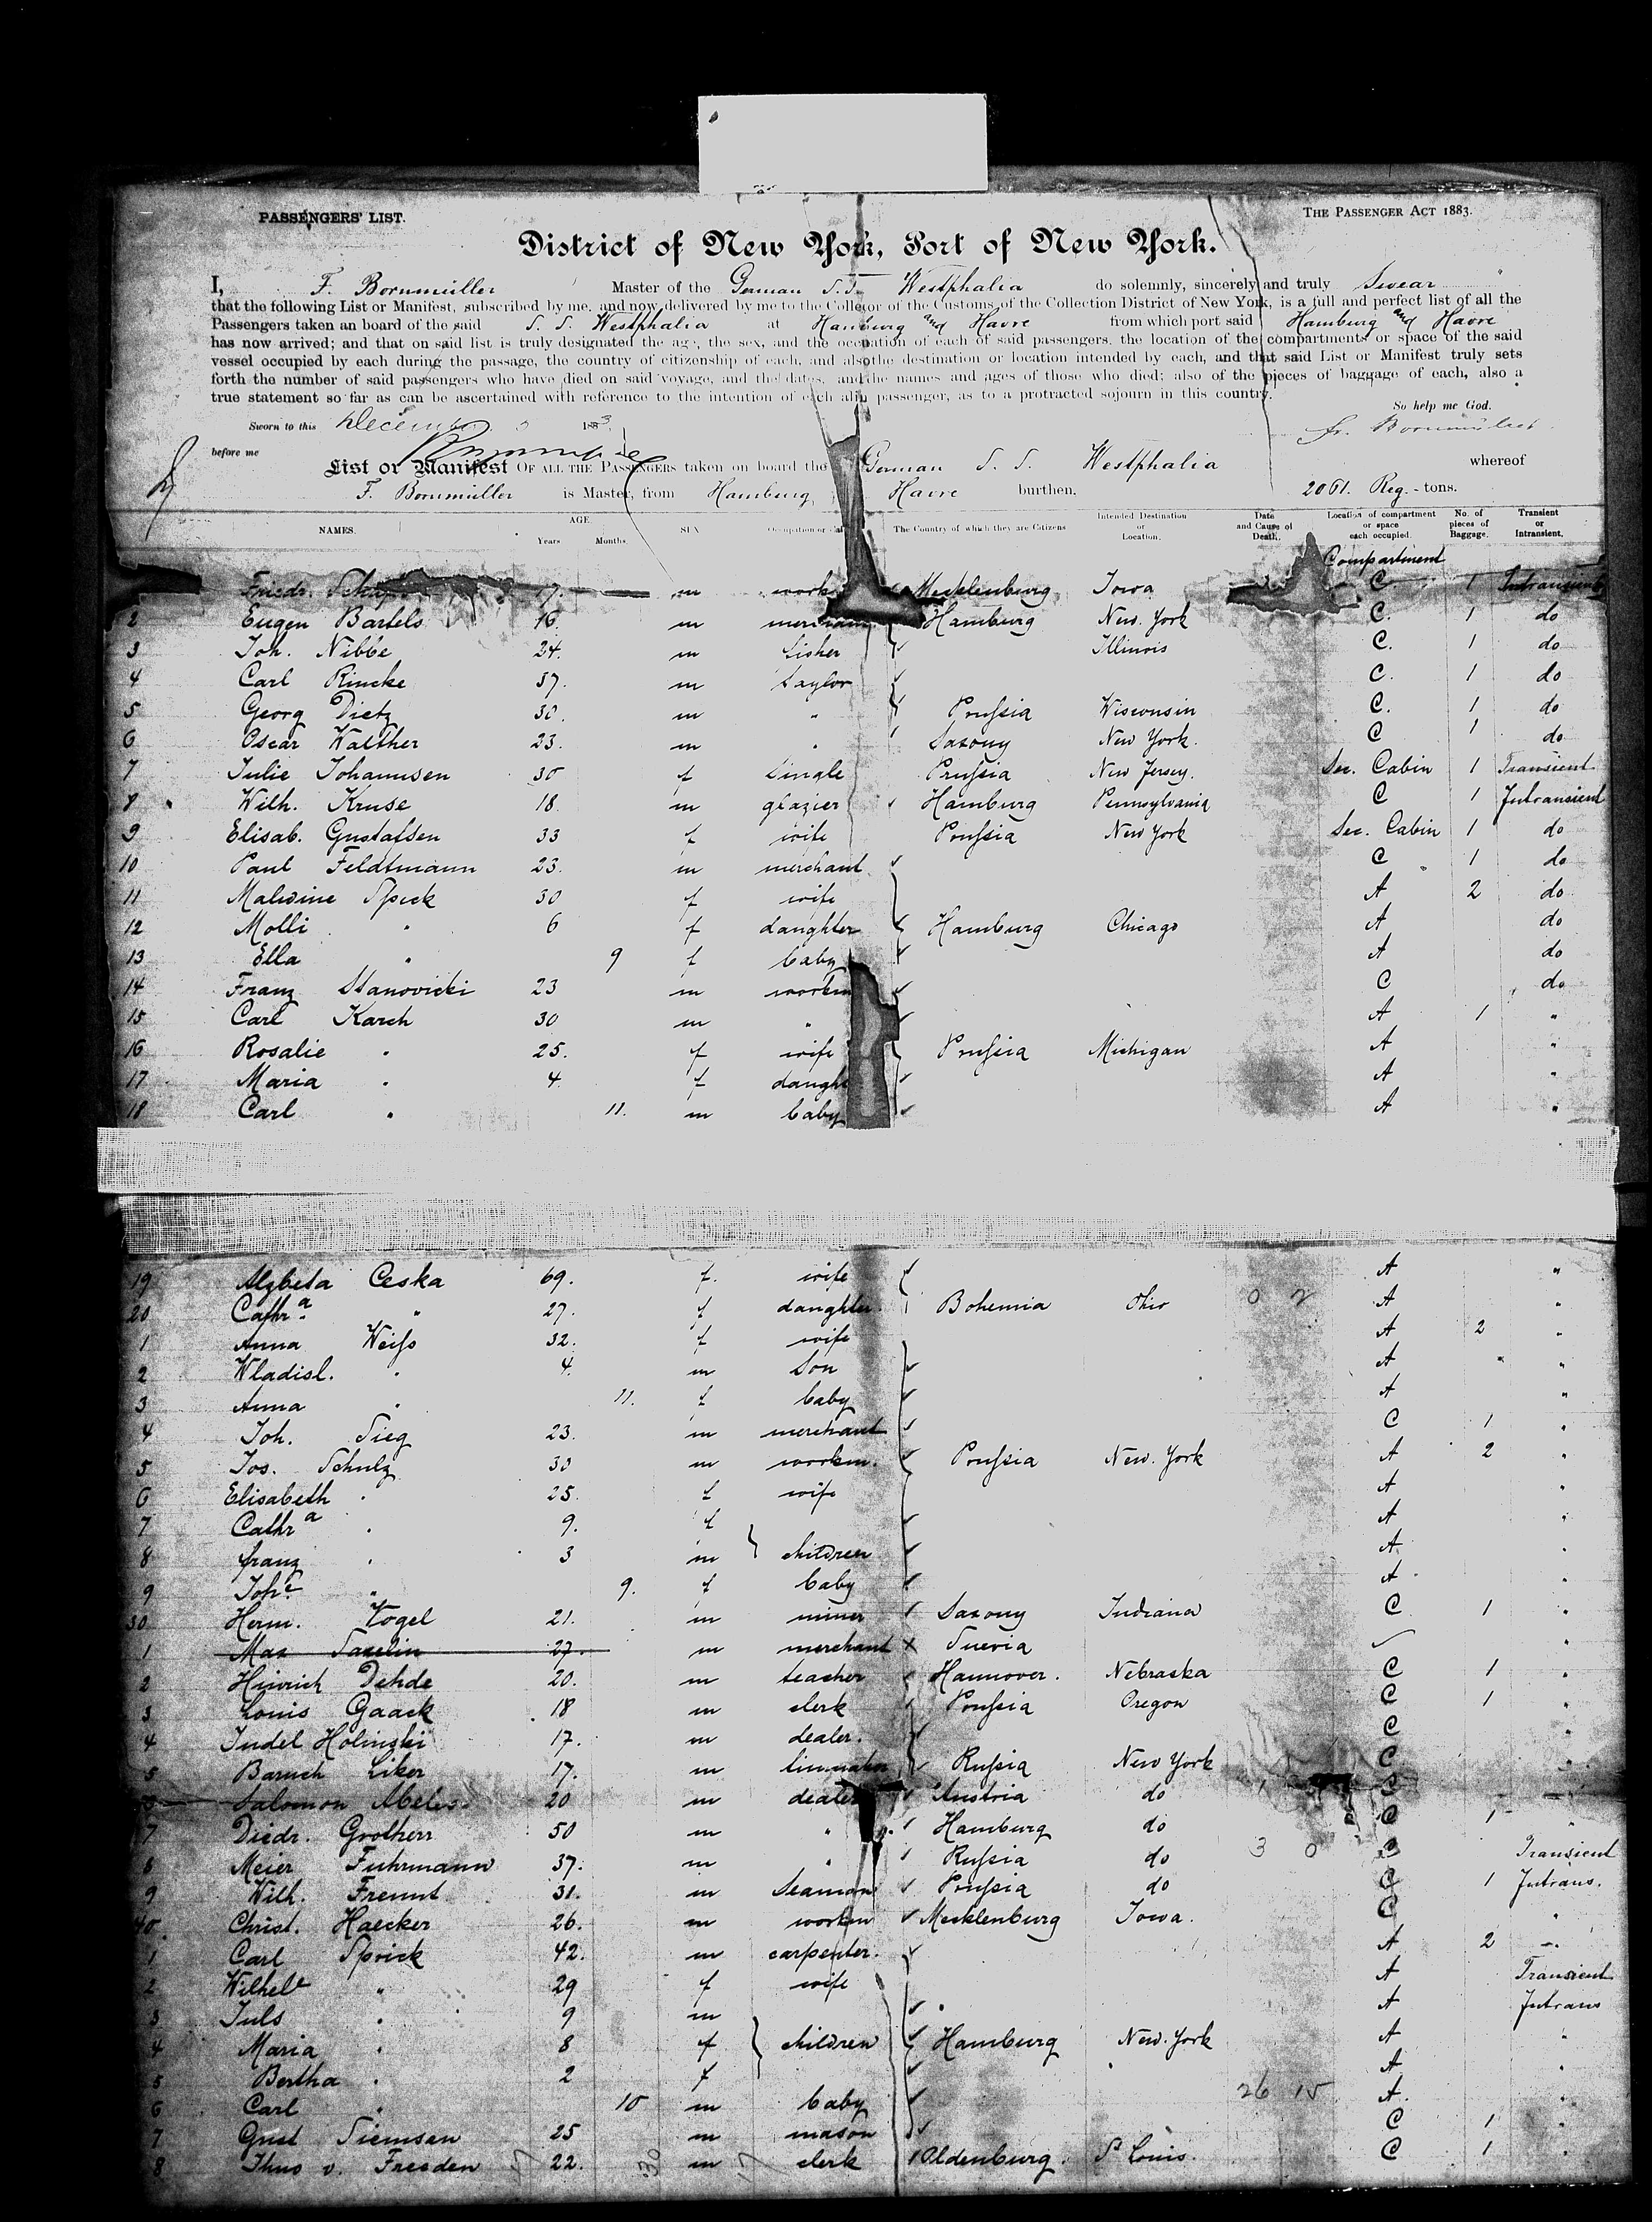 PASSENGERS' LIST.
THE PASSENGER ACT 1883.
District of New York, Port of New York.
I, F. Bornmüller Master of the German S.S. Westphalia do solemnly, sincerely and truly Swear
that the following List or Manifest, subscribed by me, and now delivered by me to the Collector of the Customs of the Collection District of New York, is a full and perfect list of all the
Passengers taken an board of the said S. S. Westphalia at Hamburg and Havre from which port said Hamburg and Havre
has now arrived; and that on said list is truly designated the age, the sex, and the occupation of each of said passengers, the location of the compartments or space of the said
vessel occupied by each during the passage, the country of citizenship of each, and also the destination or location intended by each, and that said List or Manifest truly sets
forth the number of said passengers who have died on said voyage, and the dates, and the names and ages of those who died; also of the pieces of baggage of each, also a
true statement so far as can be ascertained with reference to the intention of each alin passenger, as to a protracted sojourn in this country.
So help me God.
Sworn to this December 1883. Fr. Bornmüller
before me
List or Manifest OF ALL THE PASSENGERS taken on board the German S. S. Westphalia whereof
F. Bornmüller is Master, from Hamburg, Havre burthen, 2061. Reg. - tons.
NAMES. AGE. Years Months. SEX Occupation or The Country of which they are Citizens Intended Destination or Location. Date and Cause of Death. Location of compartment or space each occupied. No. of pieces of Baggage. Transient or Intransient.
Compartment
Friedr. 17. m work Mecklenburg Iowa C. 1 Intransient
2 Eugen Bartels 16. m merchant Hamburg New. York C. 1 do
3 Joh. Nibbe 24. m fisher Illinois C. 1 do
4 Carl Rincke 37. m taylor C. 1 do
5 Georg Dietz 30. m " Prussia Wisconsin C. 1 do
6 Oscar Walther 23. m " Saxony New York. C 1 do
7 Julie Johannsen 30 f Single Prussia New Jersey. Sec. Cabin 1 Transient
8 Wilh. Kruse 18. m glazier Hamburg Pennsylvania C 1 Intransient
9 Elisab. Gustafsen 33 f wife Prussia New York Sec. Cabin 1 do
10 Paul Feldtmann 23. m merchant C 1 do
11 Malwine Speck 30 f wife A 2 do
12 Molli " 6 f daughter Hamburg Chicago A do
13 Ella " 9 f baby A do
14 Franz Stanovicki 23 m workm C do
15 Carl Karch 30 m " A 1 "
16 Rosalie " 25. f wife Prussia Michigan A "
17 Maria " 4. f daugh A "
18 Carl " 11. m baby A "
19 Alzbeta Ceska 69. f. wife A "
20 Cathra " 27. f daughter Bohemia Ohio 0 2 A "
1 Anna Weiss 32. f wife A 2 "
2 Wladisl. " 4. m Son A "
3 Anna " 11. f baby A "
4 Joh. Sieg 23. m merchant C 1 "
5 Jos. Schulz 30 m workm. Prussia New. York A 2 "
6 Elisabeth " 25. f wife A "
7 Cathra " 9. f A "
8 Franz " 3 m children A "
9 Johe " 9. f baby A "
30 Herm. Vogel 21. m miner Saxony Indiana C 1 "
1 Max 27. m merchant x Suevia "
2 Hinrich Dehde 20. m teacher Hannover. Nebraska C 1 "
3 Louis Gaack 18 m clerk Prussia Oregon C 1 "
4 Judel Holinski 17. m dealer. C "
5 Baruch Liker 17. m Russia New York C "
Salomon Abeles 20 m dealer Austria do 1 C "
7 Diedr. Grotherr 50 m " Hamburg do C 1 "
8 Meier Fuhrmann 37. m " Russia do 3 0 C Transient
9 Wilh. Fremt 31. m Seaman Prussia do C 1 Intrans.
40. Christ. Haecker 26. m workm Mecklenburg Iowa. C "
1 Carl Sprick 42. m carpenter. A 2 "
2 Wilhele " 29 f wife A Transient
3 Juls " 9 m A Intrans
4 Maria " 8 f children Hamburg New. York A "
5 Bertha " 2 f A "
6 Carl " 10 m baby 26 15 A. "
7 Gust Siemsen 25 m mason C 1 "
8 Thno v. Freeden 22. m clerk Oldenburg. St Louis. C 1 "